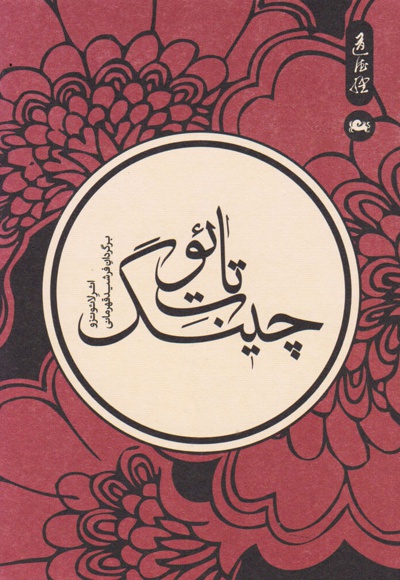 道德經
تائوت
چینگ
اثر لائوتزو
برگردان فرشید قهرمانی